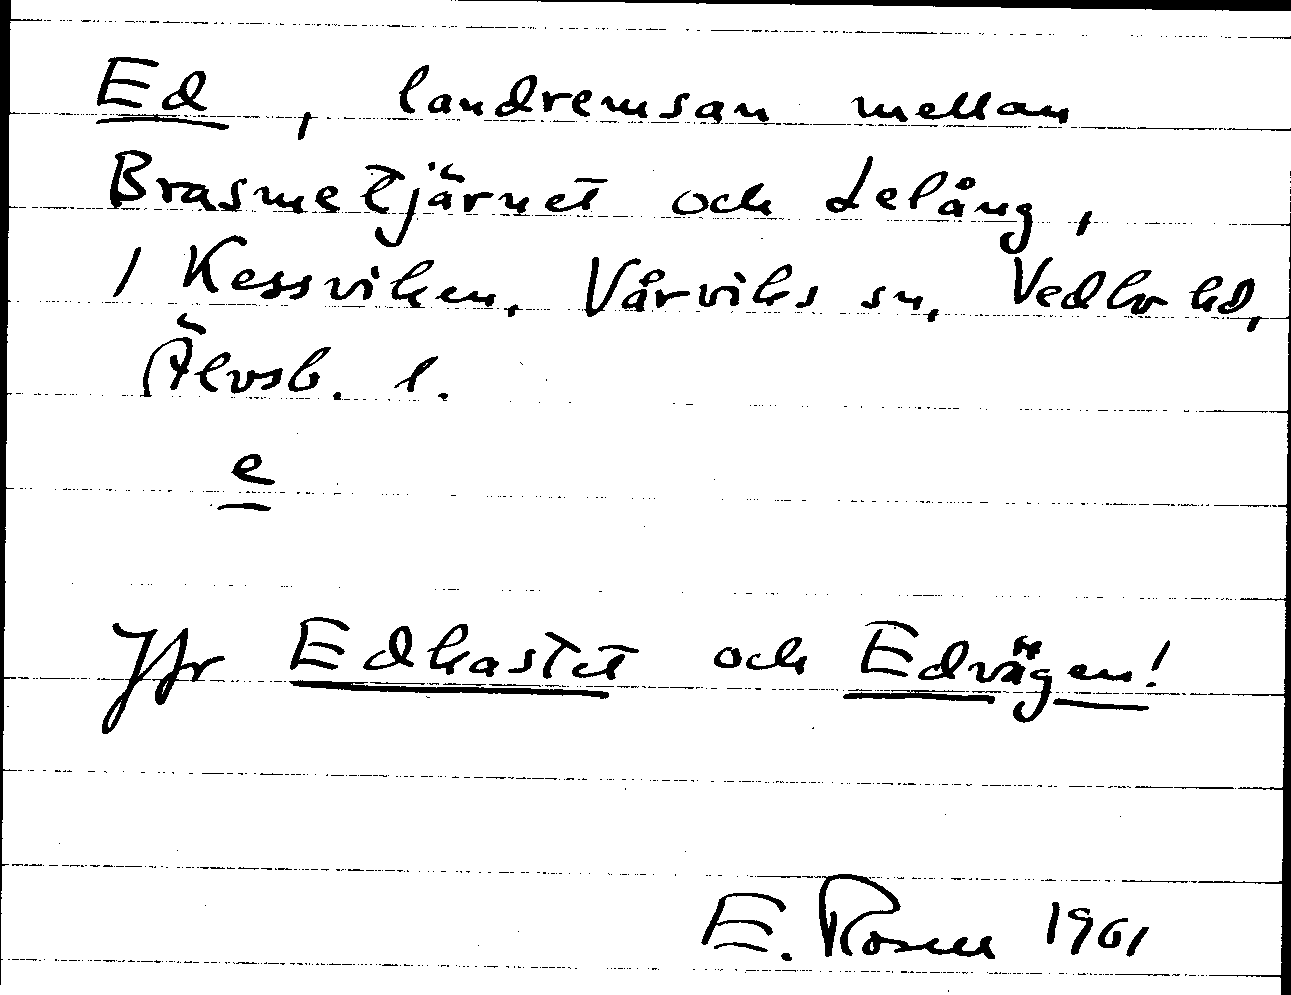 Ed, landremsan mellan
Brasmetjärnet och Lelång,
1 Kessviken, Vårviks sn, Vedbo hd,
Älvsb. l.
e
Jfr Edkastet och Edvägen!
E. Rosell 1961